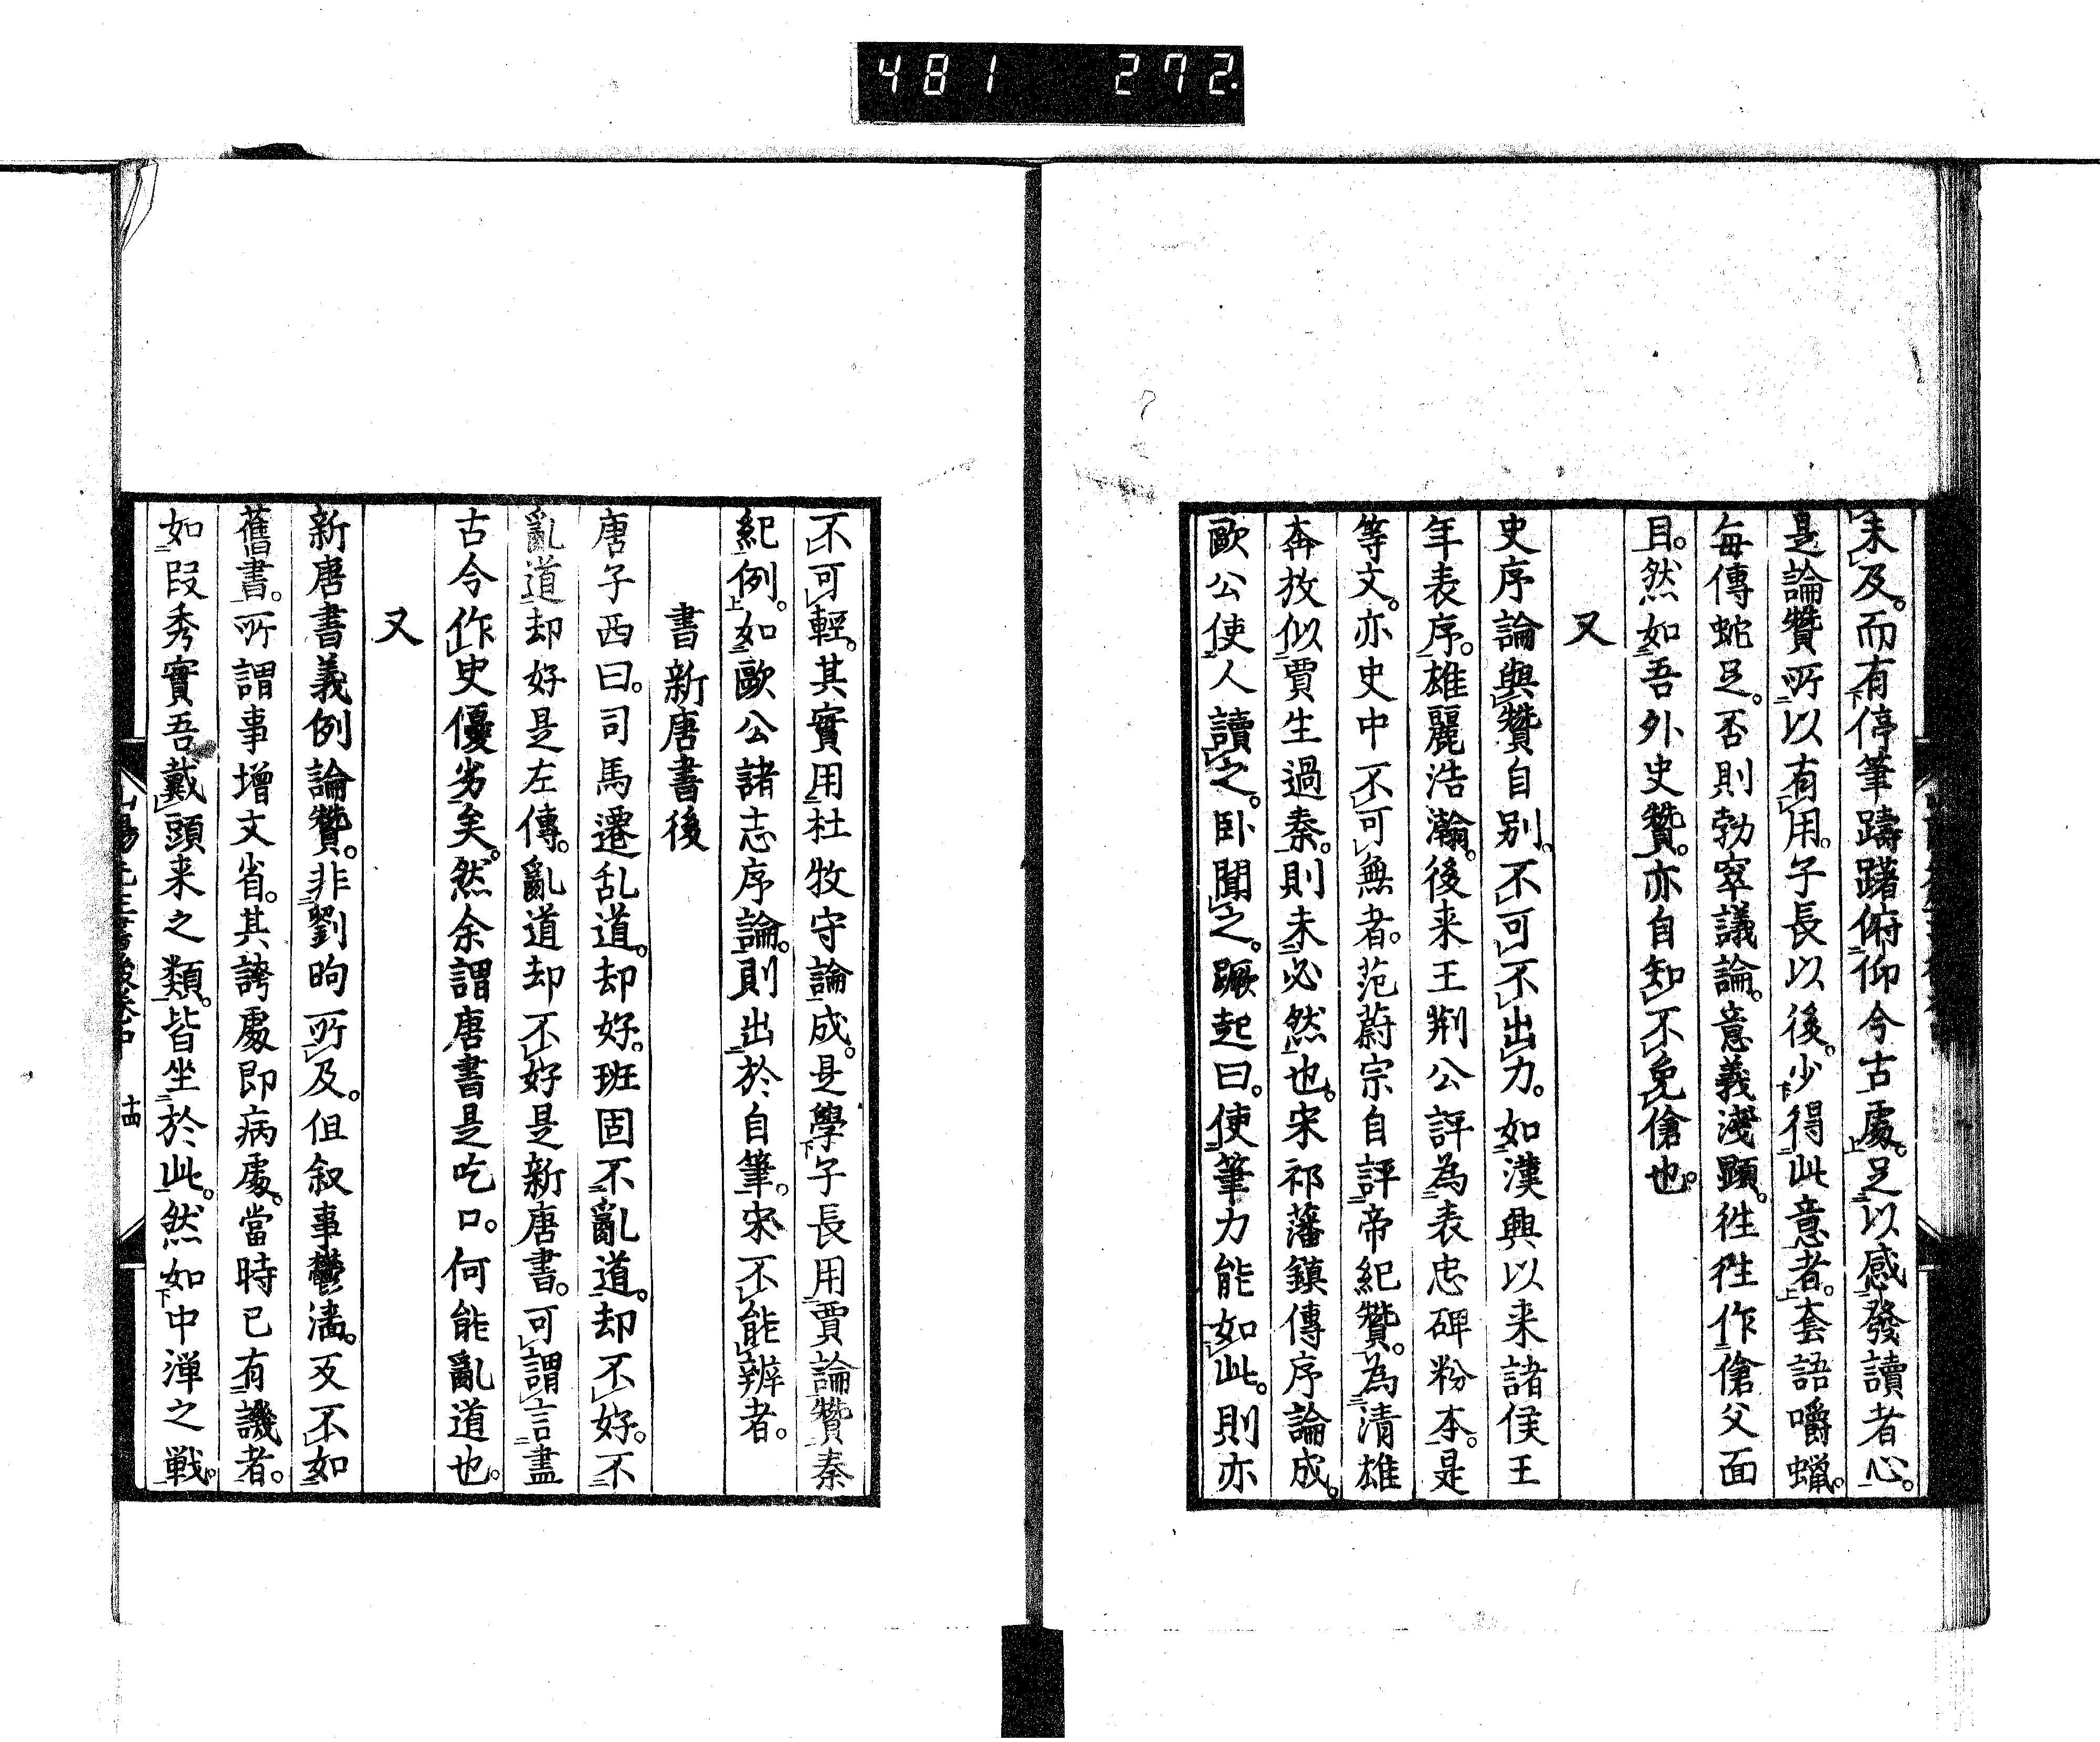 481 272.
未及。而有停筆躊躇俯仰今古處。足以感發讀者心。
是論贊所以有用。子長以後。少得此意者。套語嚼蠟。
每傳蛇足。否則勃窣議論。意義淺顯。往往作傖父面
目。然如吾外史贊。亦自知不免傖也。
又
史序論與贊自別。不可不出力。如漢興以来諸侯王
年表序。雄麗浩瀚。後来王荆公評為表忠碑粉本。是
等文。亦史中不可無者。范蔚宗自評帝紀贊。為清雄
奔放似賈生過秦。則未必然也。宋祁藩鎮傳序論成。
歐公使人讀之。卧聞之。蹶起曰。使筆力能如此。則亦
不可輕。其實用杜牧守論成。是學子長用賈論贊秦
紀例。如歐公諸志序論。則出於自筆。宋不能辨者。
書新唐書後
唐子西曰。司馬遷乱道。却好。班固不亂道。却不好。不
亂道却好是左傳。亂道却不好是新唐書。可謂言盡
古今作史優劣矣。然余謂唐書是吃口。何能亂道也。
又
新唐書義例論贊。非劉昫所及。但叙事鬱澁。反不如
舊書。所謂事增文省。其誇處即病處。當時已有譏者。
如段秀實吾戴頭来之類。皆坐於此。然如中渾之戰。
十四